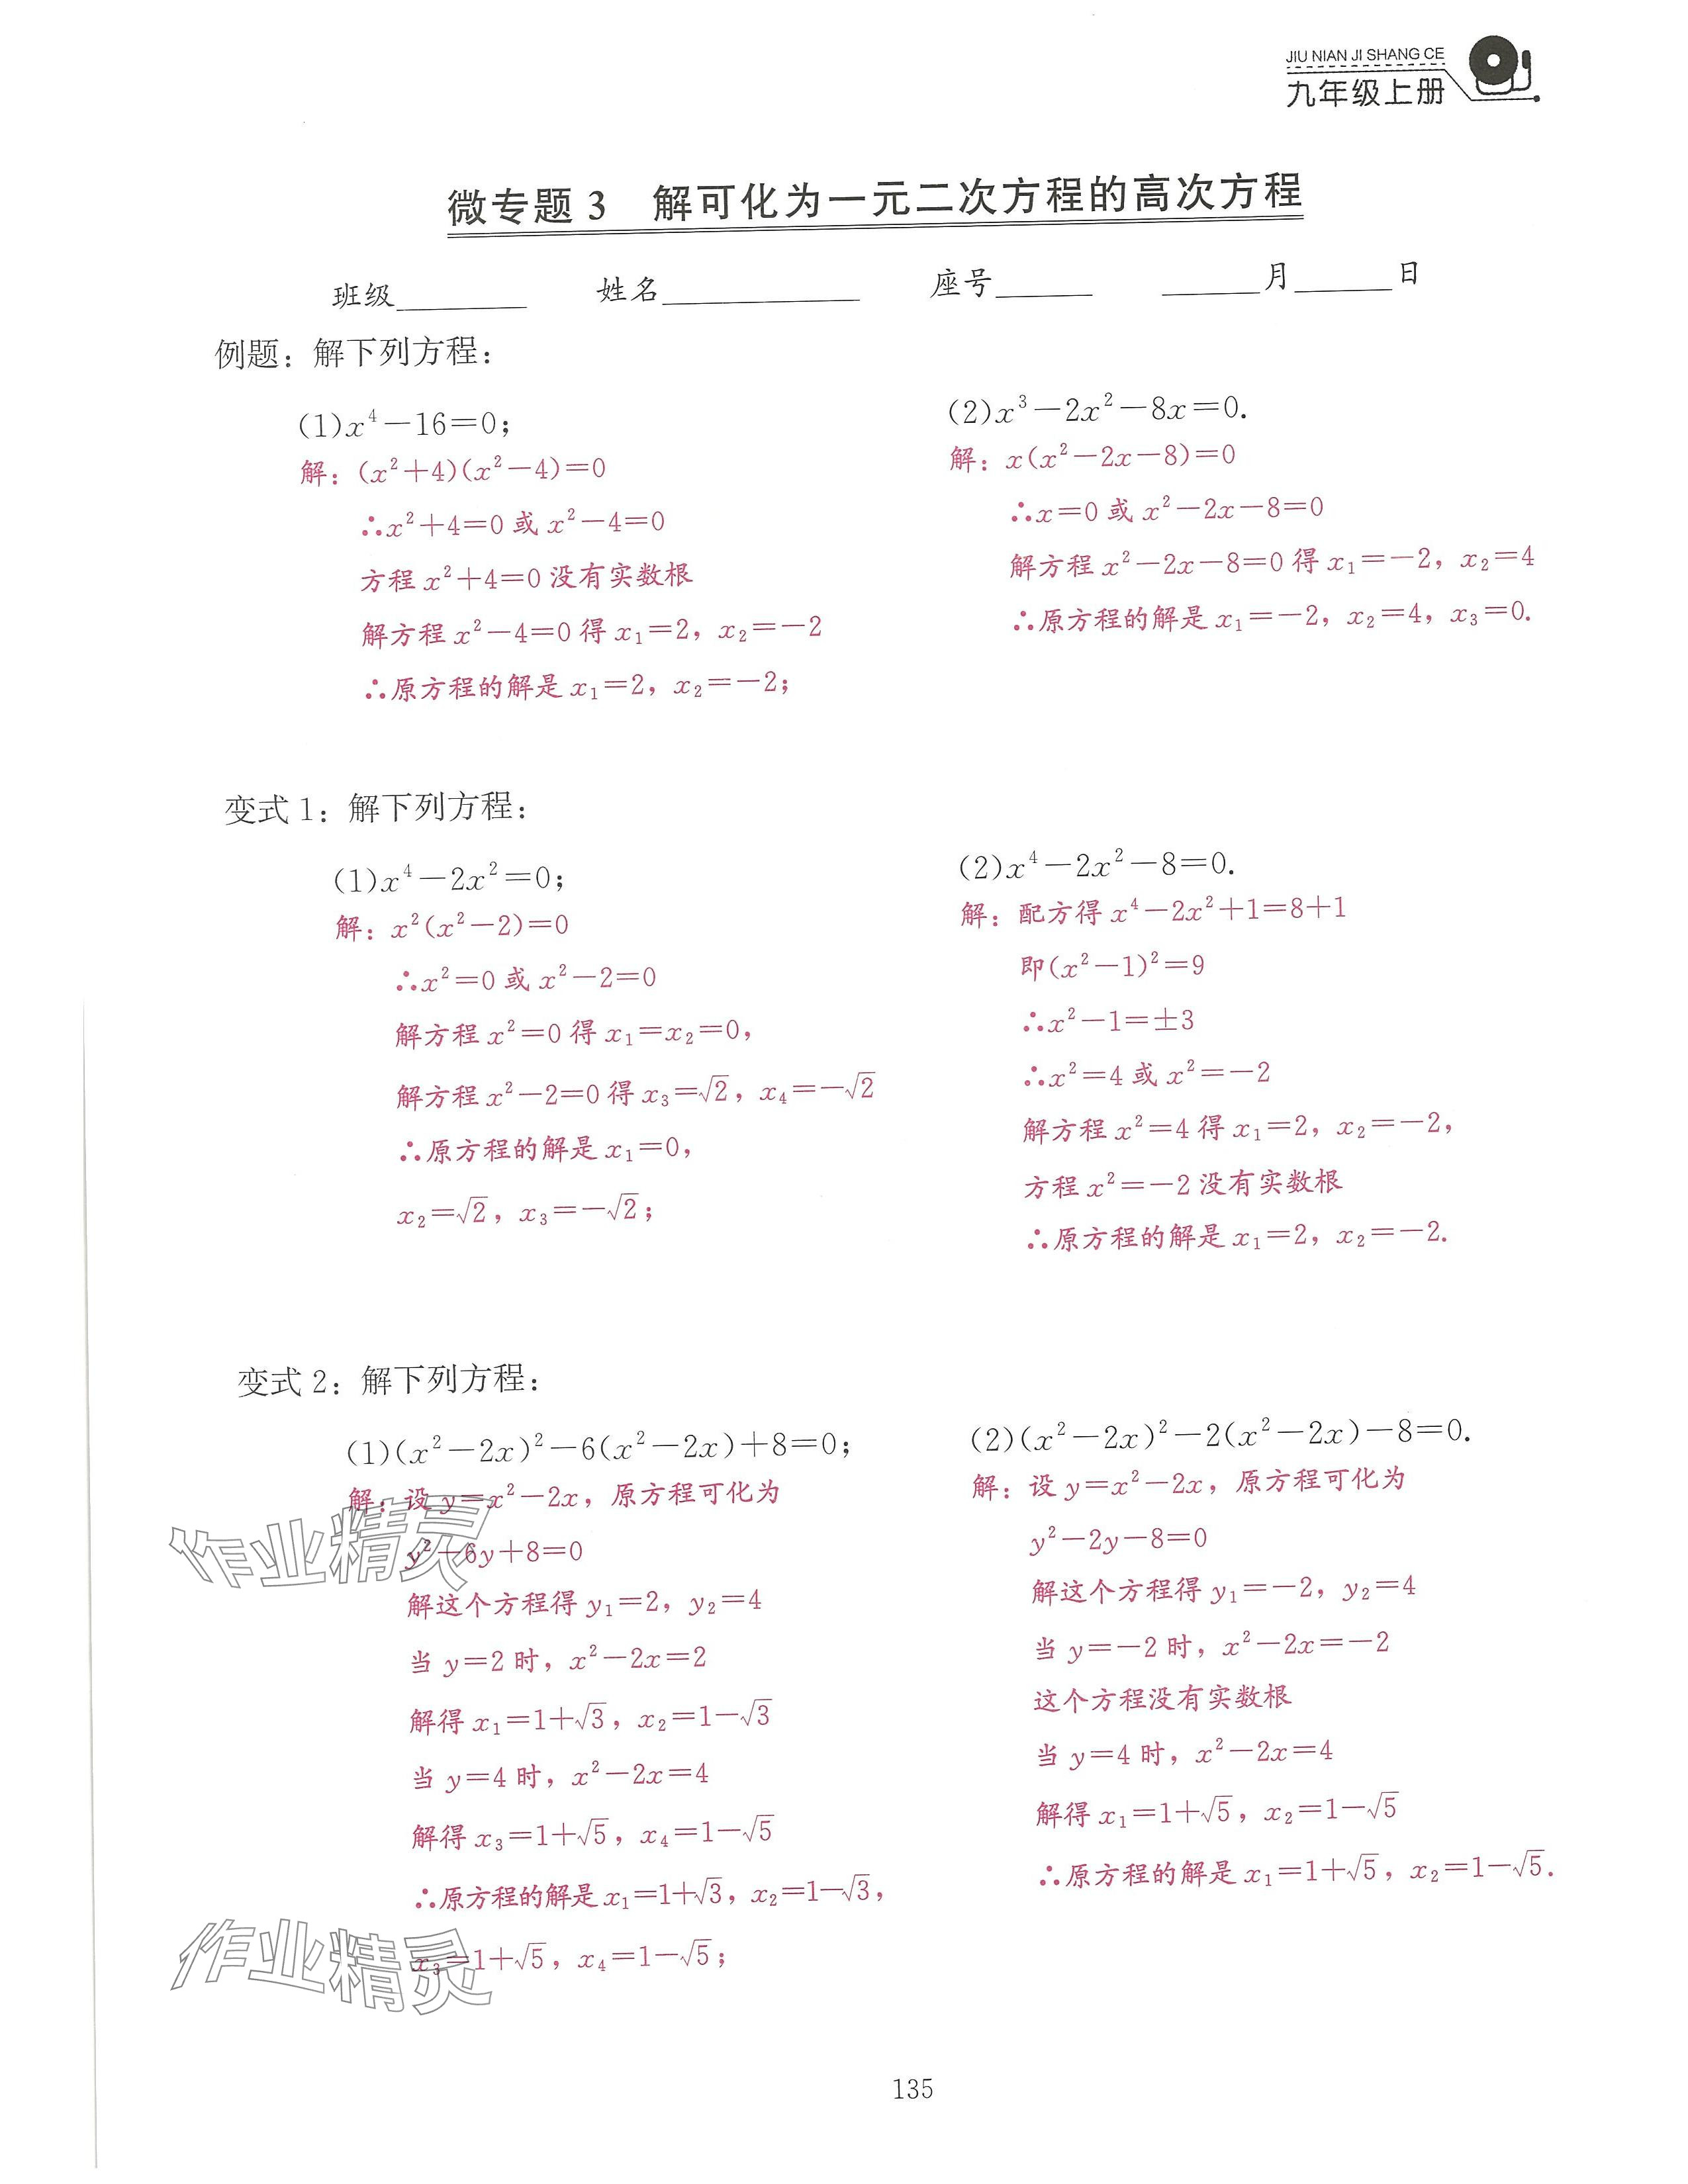 JIU NIAN JI SHANG CE
九年级上册
微专题 3 解可化为一元二次方程的高次方程
班级________ 姓名____________ 座号______ ______月______日
例题：解下列方程：
(1)x⁴－16＝0；
解：(x²＋4)(x²－4)＝0
∴x²＋4＝0 或 x²－4＝0
方程 x²＋4＝0 没有实数根
解方程 x²－4＝0 得 x₁＝2，x₂＝－2
∴原方程的解是 x₁＝2，x₂＝－2；
(2)x³－2x²－8x＝0.
解：x(x²－2x－8)＝0
∴x＝0 或 x²－2x－8＝0
解方程 x²－2x－8＝0 得 x₁＝－2，x₂＝4
∴原方程的解是 x₁＝－2，x₂＝4，x₃＝0.
变式 1：解下列方程：
(1)x⁴－2x²＝0；
解：x²(x²－2)＝0
∴x²＝0 或 x²－2＝0
解方程 x²＝0 得 x₁＝x₂＝0，
解方程 x²－2＝0 得 x₃＝√2，x₄＝－√2
∴原方程的解是 x₁＝0，
x₂＝√2，x₃＝－√2；
(2)x⁴－2x²－8＝0.
解：配方得 x⁴－2x²＋1＝8＋1
即(x²－1)²＝9
∴x²－1＝±3
∴x²＝4 或 x²＝－2
解方程 x²＝4 得 x₁＝2，x₂＝－2，
方程 x²＝－2 没有实数根
∴原方程的解是 x₁＝2，x₂＝－2.
变式 2：解下列方程：
(1)(x²－2x)²－6(x²－2x)＋8＝0；
解：设 y＝x²－2x，原方程可化为
y²－6y＋8＝0
解这个方程得 y₁＝2，y₂＝4
当 y＝2 时，x²－2x＝2
解得 x₁＝1＋√3，x₂＝1－√3
当 y＝4 时，x²－2x＝4
解得 x₃＝1＋√5，x₄＝1－√5
∴原方程的解是 x₁＝1＋√3，x₂＝1－√3，
x₃＝1＋√5，x₄＝1－√5；
(2)(x²－2x)²－2(x²－2x)－8＝0.
解：设 y＝x²－2x，原方程可化为
y²－2y－8＝0
解这个方程得 y₁＝－2，y₂＝4
当 y＝－2 时，x²－2x＝－2
这个方程没有实数根
当 y＝4 时，x²－2x＝4
解得 x₁＝1＋√5，x₂＝1－√5
∴原方程的解是 x₁＝1＋√5，x₂＝1－√5.
作业精灵
作业精灵
135